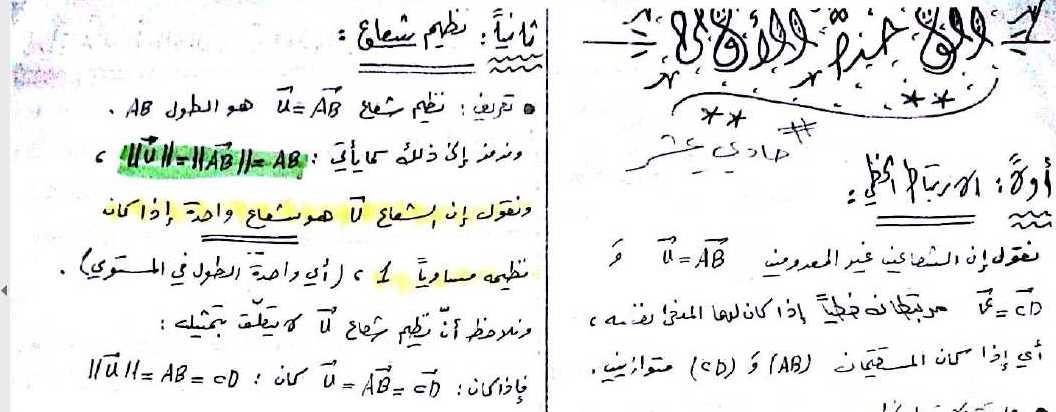 الوحدة الأولى
حادي عشر
أولاً: الارتباط الخطي:
نقول إن الشعاعين غير المعدومين U = AB و
V = CD مرتبطان خطياً إذا كان لهما المنحى نفسه،
أي إذا كان المستقيمان (AB) و (CD) متوازيين.
ثانياً: نظيم شعاع:
• تعريف: نظيم شعاع U = AB هو الطول AB.
ونرمز إلى ذلك كما يأتي: ||U|| = ||AB|| = AB،
ونقول إن الشعاع U هو شعاع واحدة إذا كان
نظيمه مساوياً 1، (أي واحدة الطول في المستوي).
ونلاحظ أنّ نظيم شعاع U لا يتعلّق بتمثيله:
فإذا كان: U = AB = CD كان: ||U|| = AB = CD